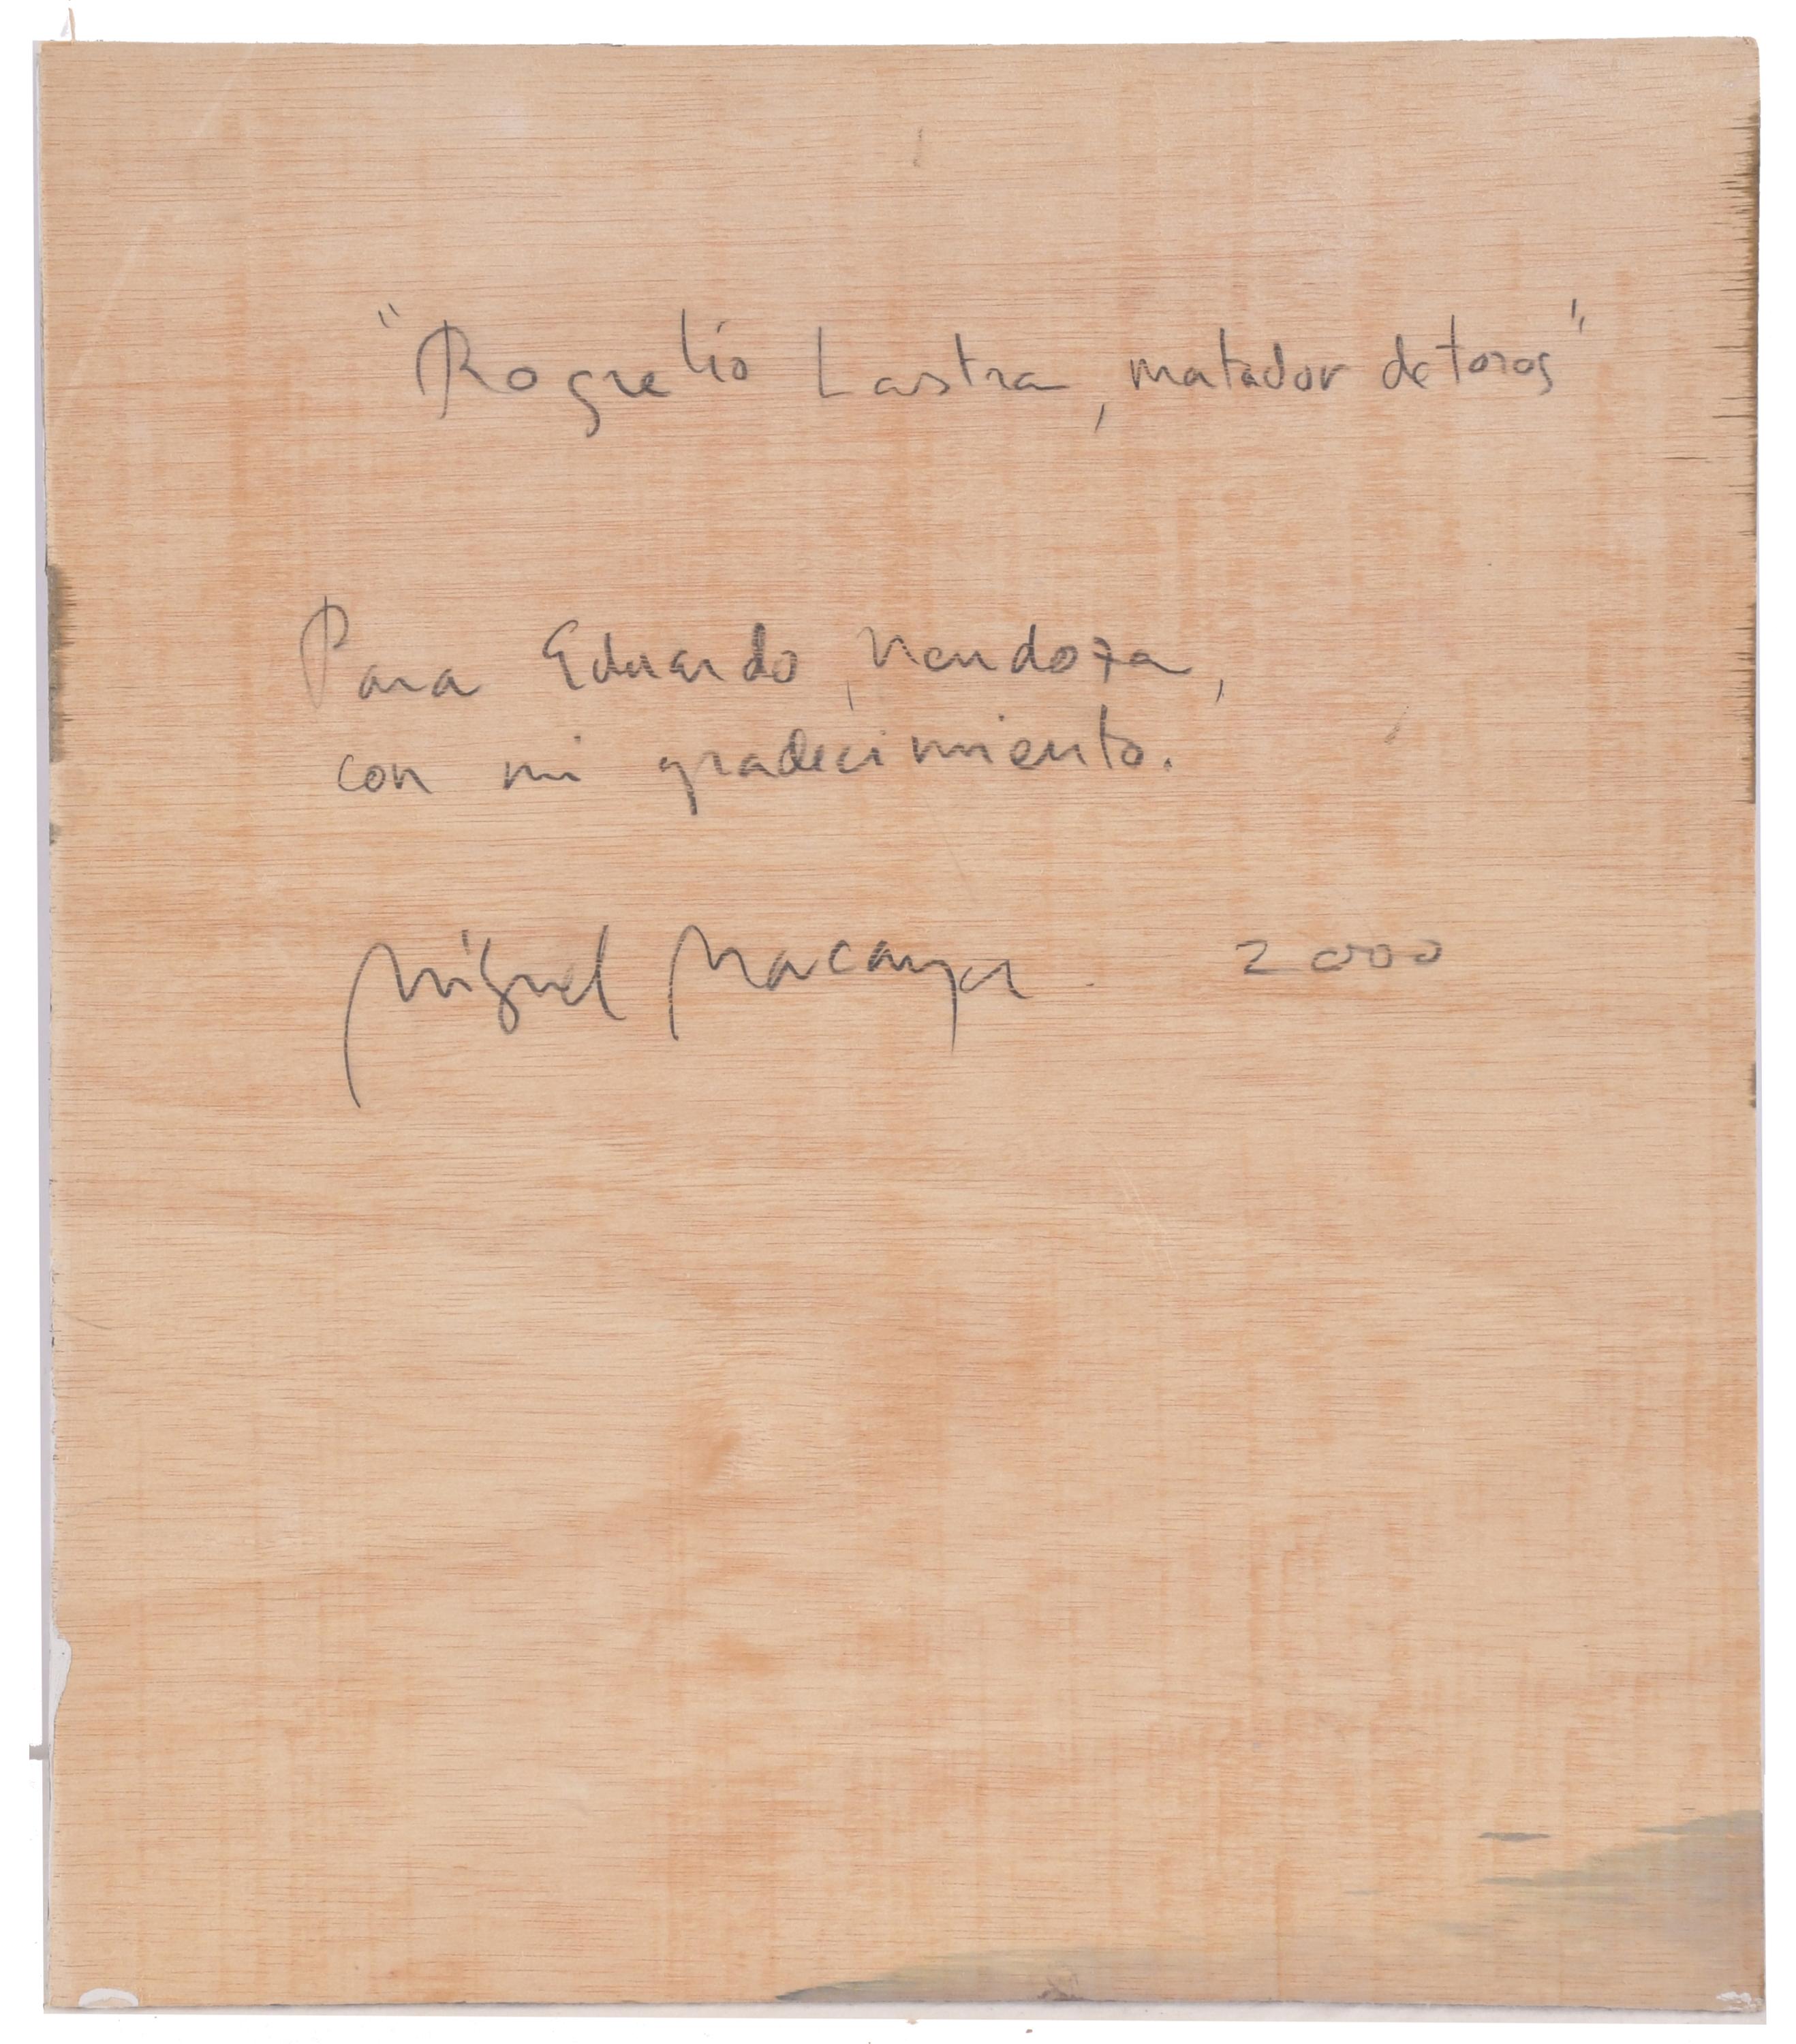 "Rogelio Lastra, matador de toros"
Para Eduardo, Mendoza,
con mi gradecimiento.
Miguel Macaya. 2000